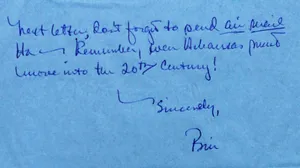 next letter, don't forget to send air mail
Ha — Remember, even Arkansas must
move into the 20th Century!
Sincerely,
Bill